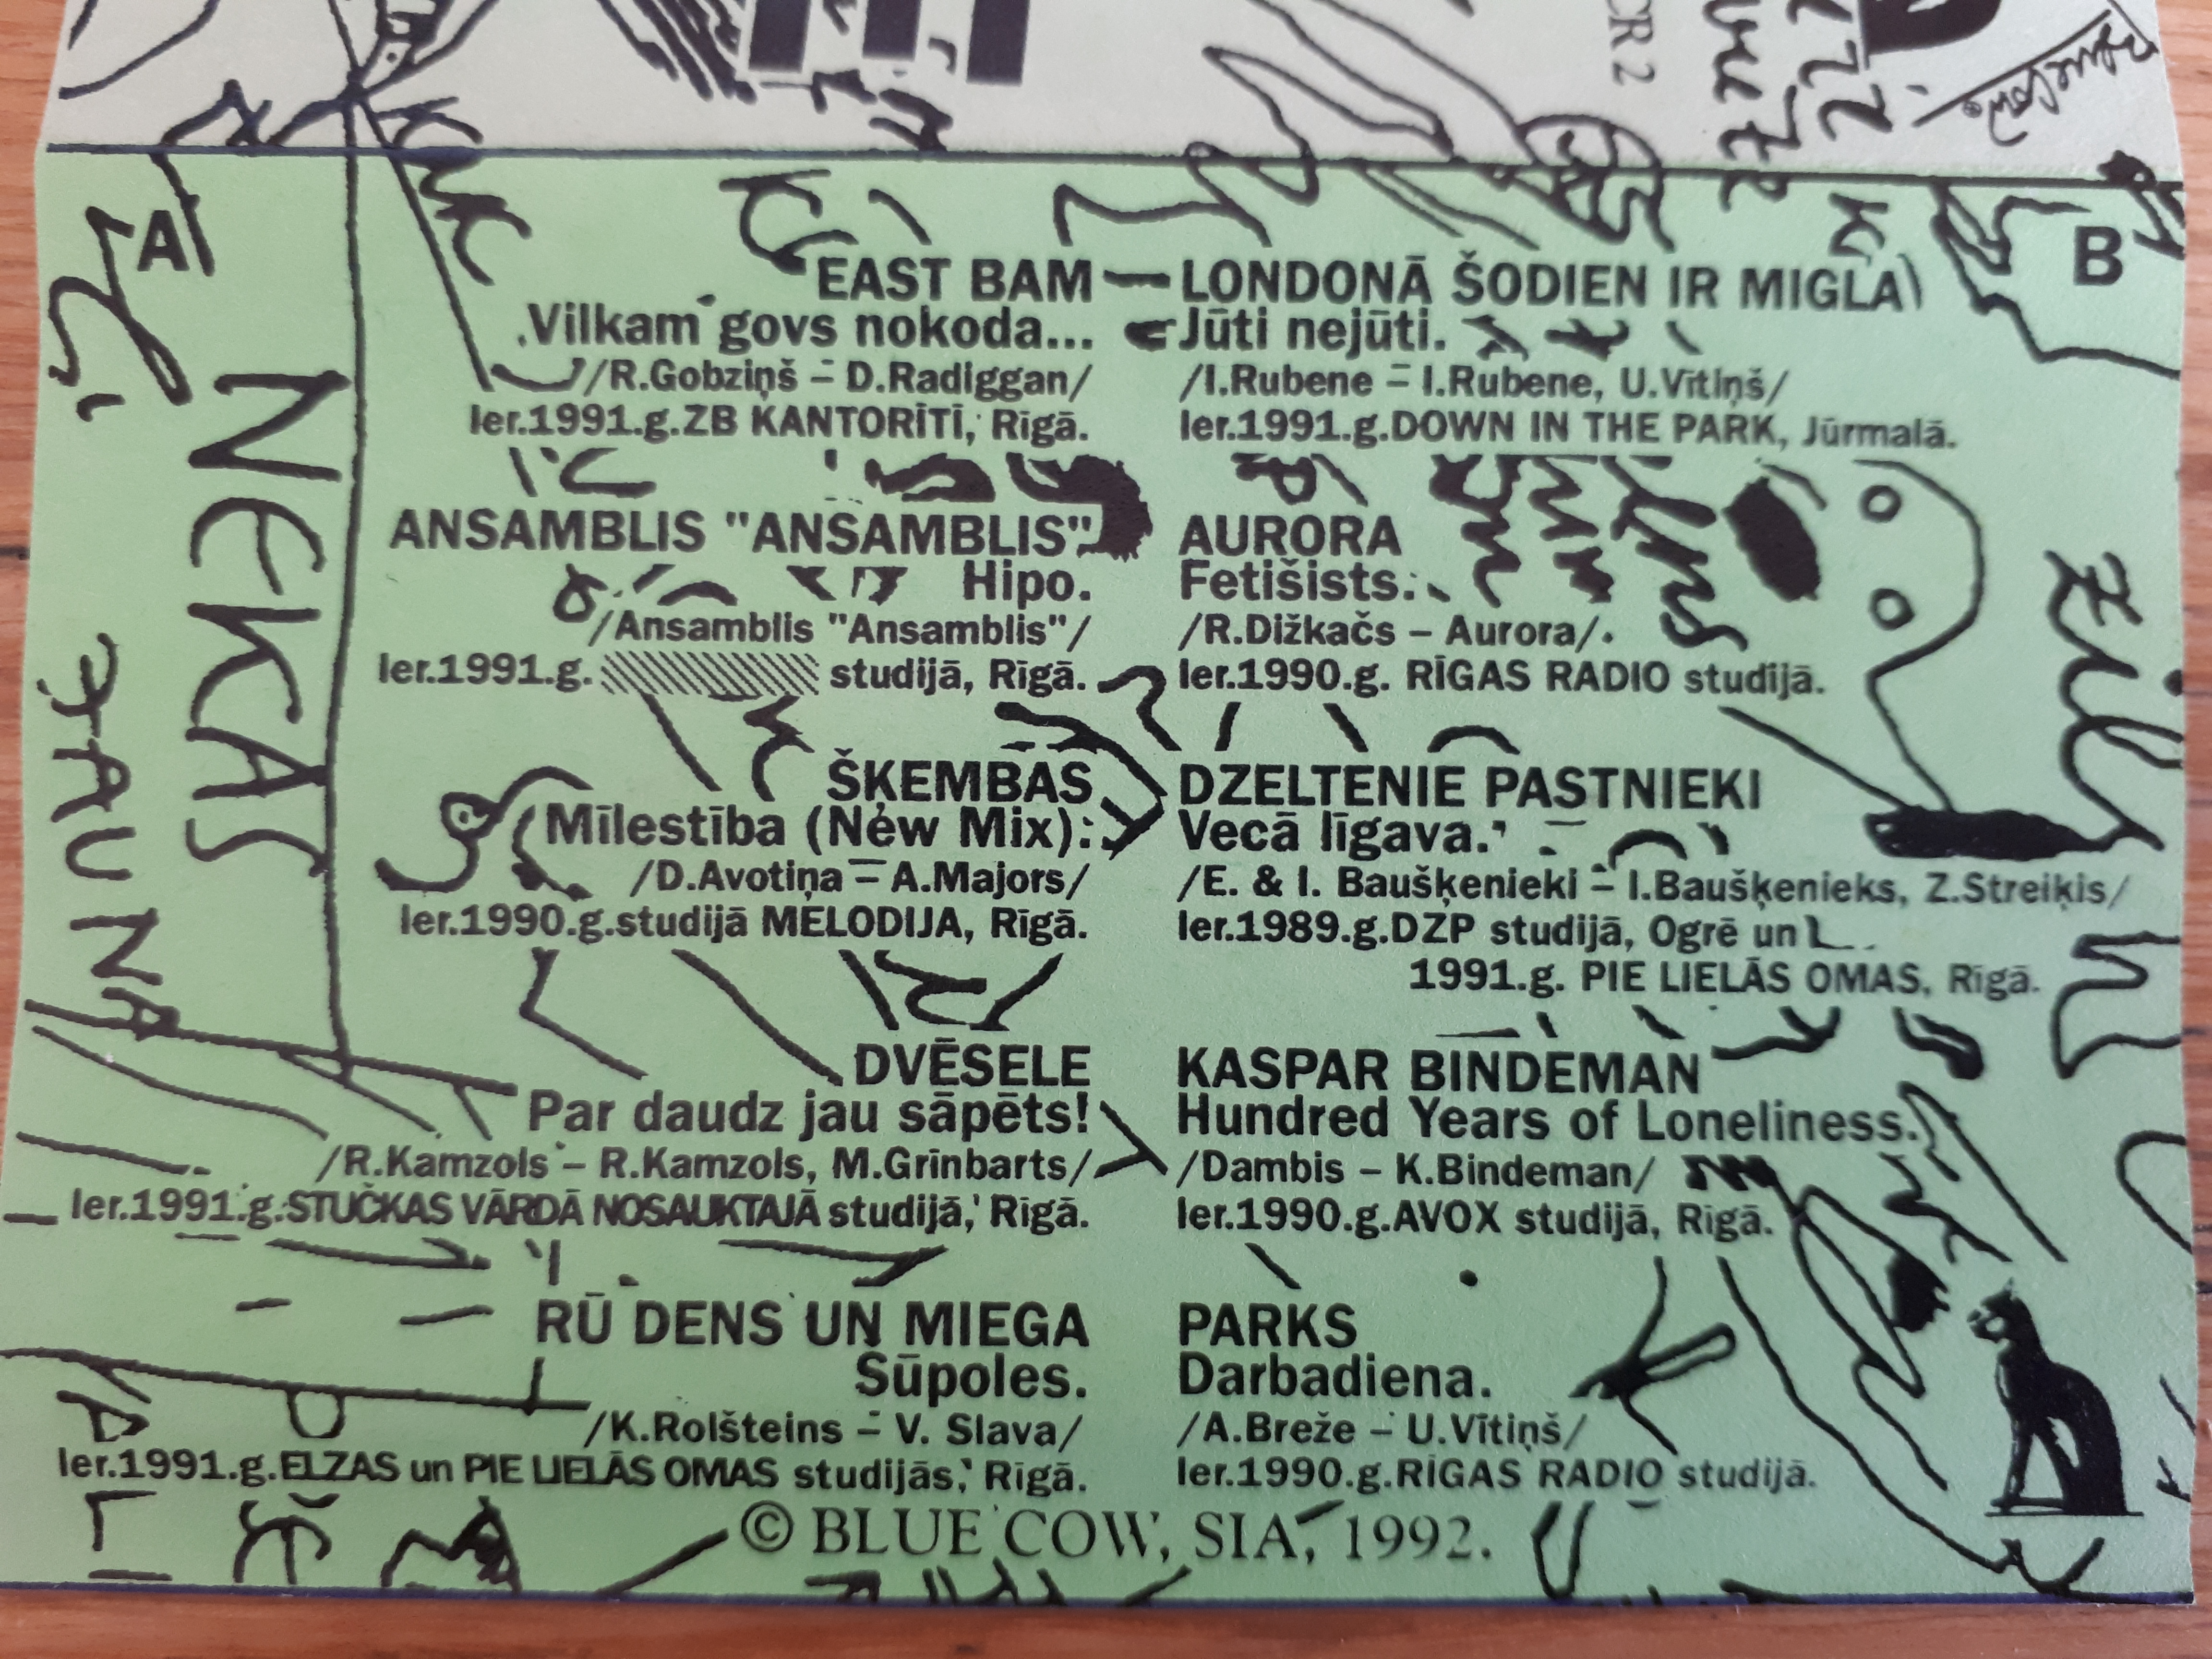 CR 2
A
NEKAS
JAUNA
EAST BAM
Vilkam govs nokoda...
/R.Gobziņš – D.Radiggan/
Ier.1991.g.ZB KANTORĪTĪ, Rīgā.
ANSAMBLIS "ANSAMBLIS"
Hipo.
/Ansamblis "Ansamblis"/
Ier.1991.g. studijā, Rīgā.
ŠĶEMBAS
Mīlestība (New Mix).
/D.Avotiņa – A.Majors/
Ier.1990.g.studijā MELODIJA, Rīgā.
DVĒSELE
Par daudz jau sāpēts!
/R.Kamzols – R.Kamzols, M.Grīnbarts/
Ier.1991.g.STUČKAS VĀRDĀ NOSAUKTAJĀ studijā, Rīgā.
RŪ DENS UN MIEGA
Šūpoles.
/K.Rolšteins – V. Slava/
Ier.1991.g.ELZAS un PIE LIELĀS OMAS studijās, Rīgā.
B
LONDONĀ ŠODIEN IR MIGLA
Jūti nejūti.
/I.Rubene – I.Rubene, U.Vītiņš/
Ier.1991.g.DOWN IN THE PARK, Jūrmalā.
AURORA
Fetišists.
/R.Dižkačs – Aurora/
Ier.1990.g. RĪGAS RADIO studijā.
DZELTENIE PASTNIEKI
Vecā līgava.
/E. & I. Baušķenieki – I.Baušķenieks, Z.Streiķis/
Ier.1989.g.DZP studijā, Ogrē un
1991.g. PIE LIELĀS OMAS, Rīgā.
KASPAR BINDEMAN
Hundred Years of Loneliness.
/Dambis – K.Bindeman/
Ier.1990.g.AVOX studijā, Rīgā.
PARKS
Darbadiena.
/A.Breže – U.Vītiņš/
Ier.1990.g.RĪGAS RADIO studijā.
© BLUE COW, SIA, 1992.